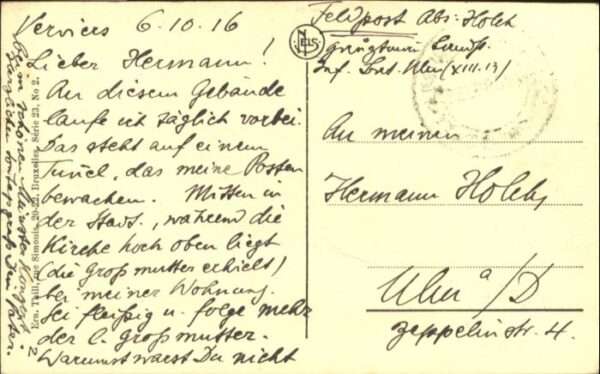 Verviers 6.10.16
Lieber Hermann!
An diesem Gebäude
laufe ich täglich vorbei.
Das steht auf einem
Tunel, das meine Posten
bewachen. Mitten in
der Stadt, während die
Kirche hoch oben liegt
(die Großmutter erhielt)
bei meiner Wohnung.
Sei fleißig u. folge mehr
der l. Großmutter.
Warum warst Du nicht
beim schönen Münster Konzert?
Herzlichen Sonntagsgruß Dein Vater.
Ern. Thill, rue Simonis, 20-22, Bruxelles. Série 23, No 2.
NELS
Feldpost Abs: Holch
Landst.
Inf. Bat. Ulm (XIII.13)
An meinen
Hermann Holch,
Ulm a/D
Zeppelinstr. 4.